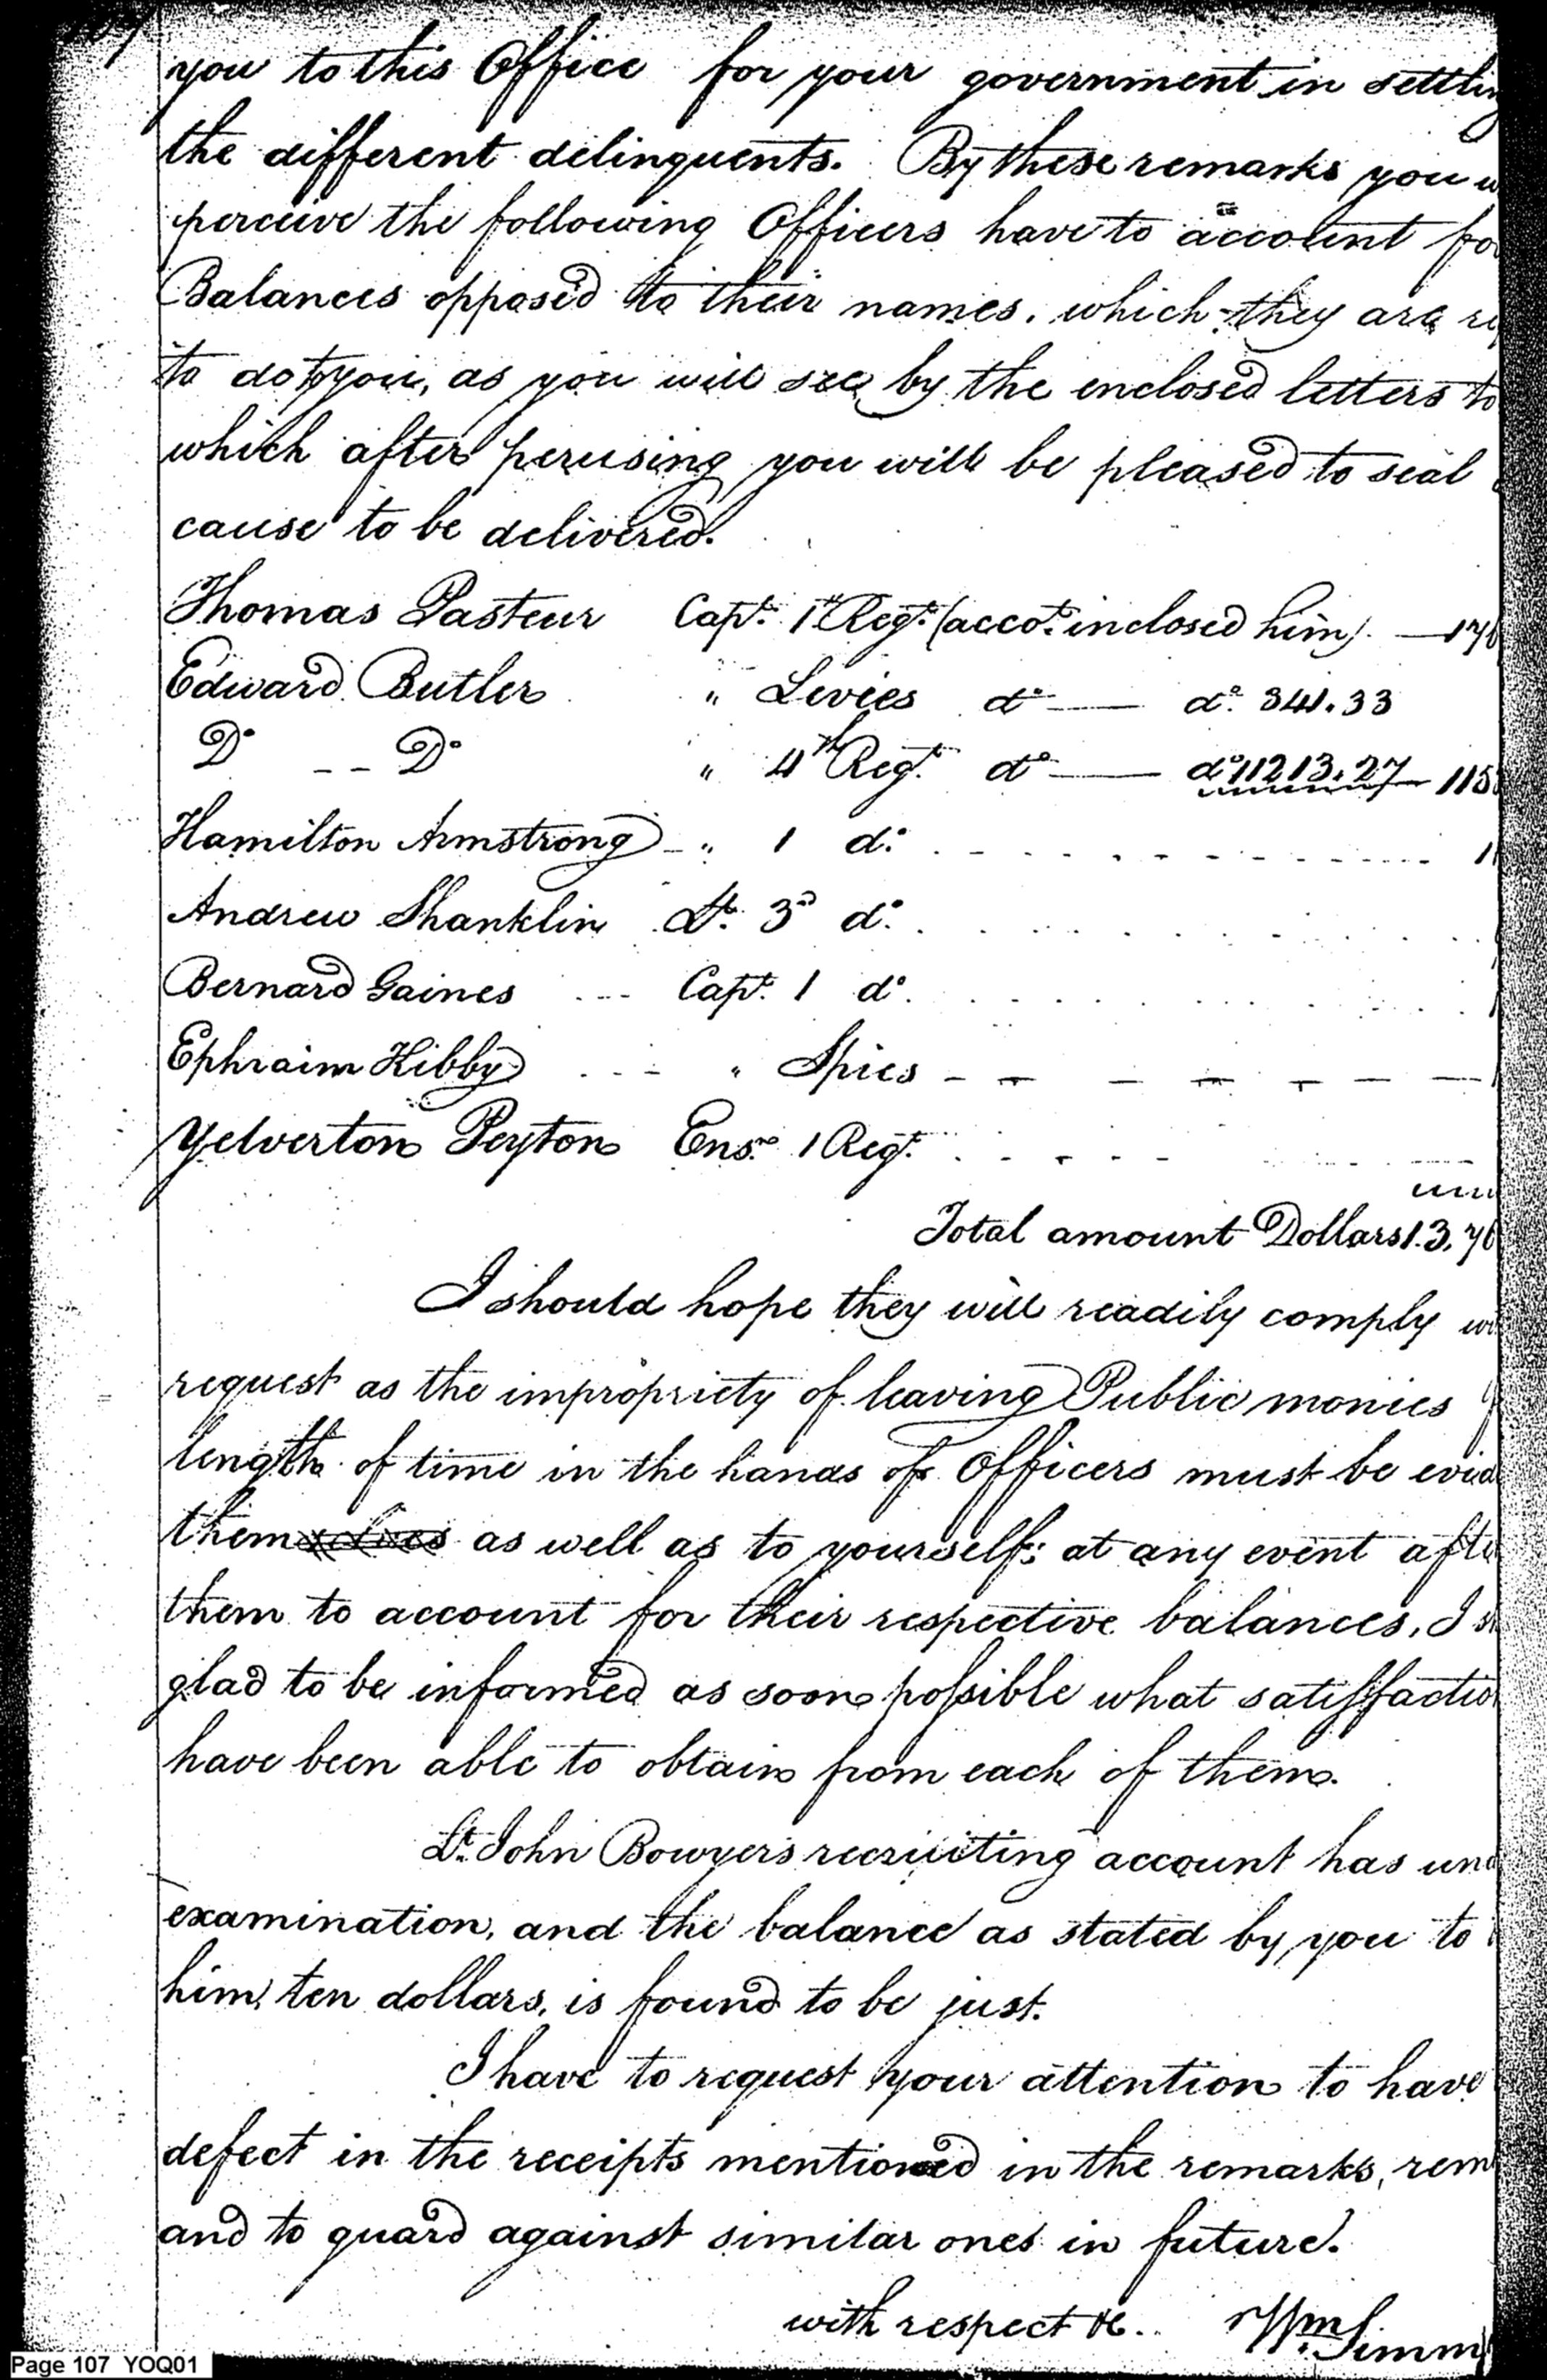 107
you to this Office for your government in settlin
the different delinquents. By these remarks you w
perceive the following Officers have to account fo
Balances opposed to their names, which they are re
to do to you, as you will see by the enclosed letters to
which after perusing you will be pleased to seal
cause to be delivered.
Thomas Pasteur Capt. 1st Regt. (accot. inclosed him). — 176
Edward Butler " Levies do — do. 341.33
Do -- Do " 4th Regt. do — do 11213.27 — 115
Hamilton Armstrong - " 1 do. 1
Andrew Shanklin Lt. 3d do.
Bernard Gaines --- Capt. 1 do.
Ephraim Kibby --- " Spies
Yelverton Peyton Ensn 1 Regt.
Total amount Dollars 1.3.76
I should hope they will readily comply wi
request as the impropriety of leaving Public monies
length of time in the hands of Officers must be evid
themselves as well as to yourself: at any event afte
them to account for their respective balances, I s
glad to be informed as soon possible what satisfactio
have been able to obtain from each of them.
Lt. John Bowyers recruiting account has und
examination, and the balance as stated by you to
him, ten dollars, is found to be just.
I have to request your attention to have
defect in the receipts mentioned in the remarks, rem
and to guard against similar ones in future.
with respect &c. Wm. Simm
Page 107 YOQ01